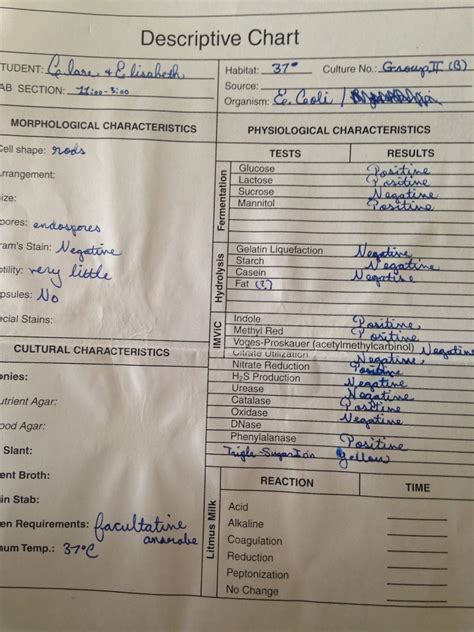 Descriptive Chart
STUDENT: Clare & Elisabeth
Habitat: 37° Culture No.: Group II (B)
AB SECTION: 11:00-3:00
Source:
Organism: E. Coli /
MORPHOLOGICAL CHARACTERISTICS
PHYSIOLOGICAL CHARACTERISTICS
Cell shape: rods
TESTS RESULTS
rrangement:
ize:
pores: endospores
ram's Stain: Negative
otility: very little
psules: No
ecial Stains:
Fermentation
Glucose Positive
Lactose Positive
Sucrose Negative
Mannitol Positive
Hydrolysis
Gelatin Liquefaction Negative
Starch Negative
Casein Negative
Fat
IMViC
Indole Positive
Methyl Red Positive
Voges-Proskauer (acetylmethylcarbinol) Negative
Citrate Utilization Negative
Nitrate Reduction Positive
H₂S Production Negative
Urease Negative
Catalase Positive
Oxidase Negative
DNase Negative
Phenylalanase Positive
Triple-Sugar Iron Yellow
CULTURAL CHARACTERISTICS
onies:
utrient Agar:
ood Agar:
Slant:
ent Broth:
in Stab:
en Requirements: facultative anaerobe
num Temp.: 37°C
REACTION TIME
Litmus Milk
Acid
Alkaline
Coagulation
Reduction
Peptonization
No Change